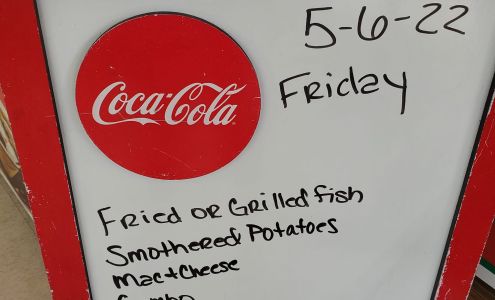 5-6-22
Coca-Cola
Friday
Fried or Grilled fish
Smothered Potatoes
Mac+Cheese